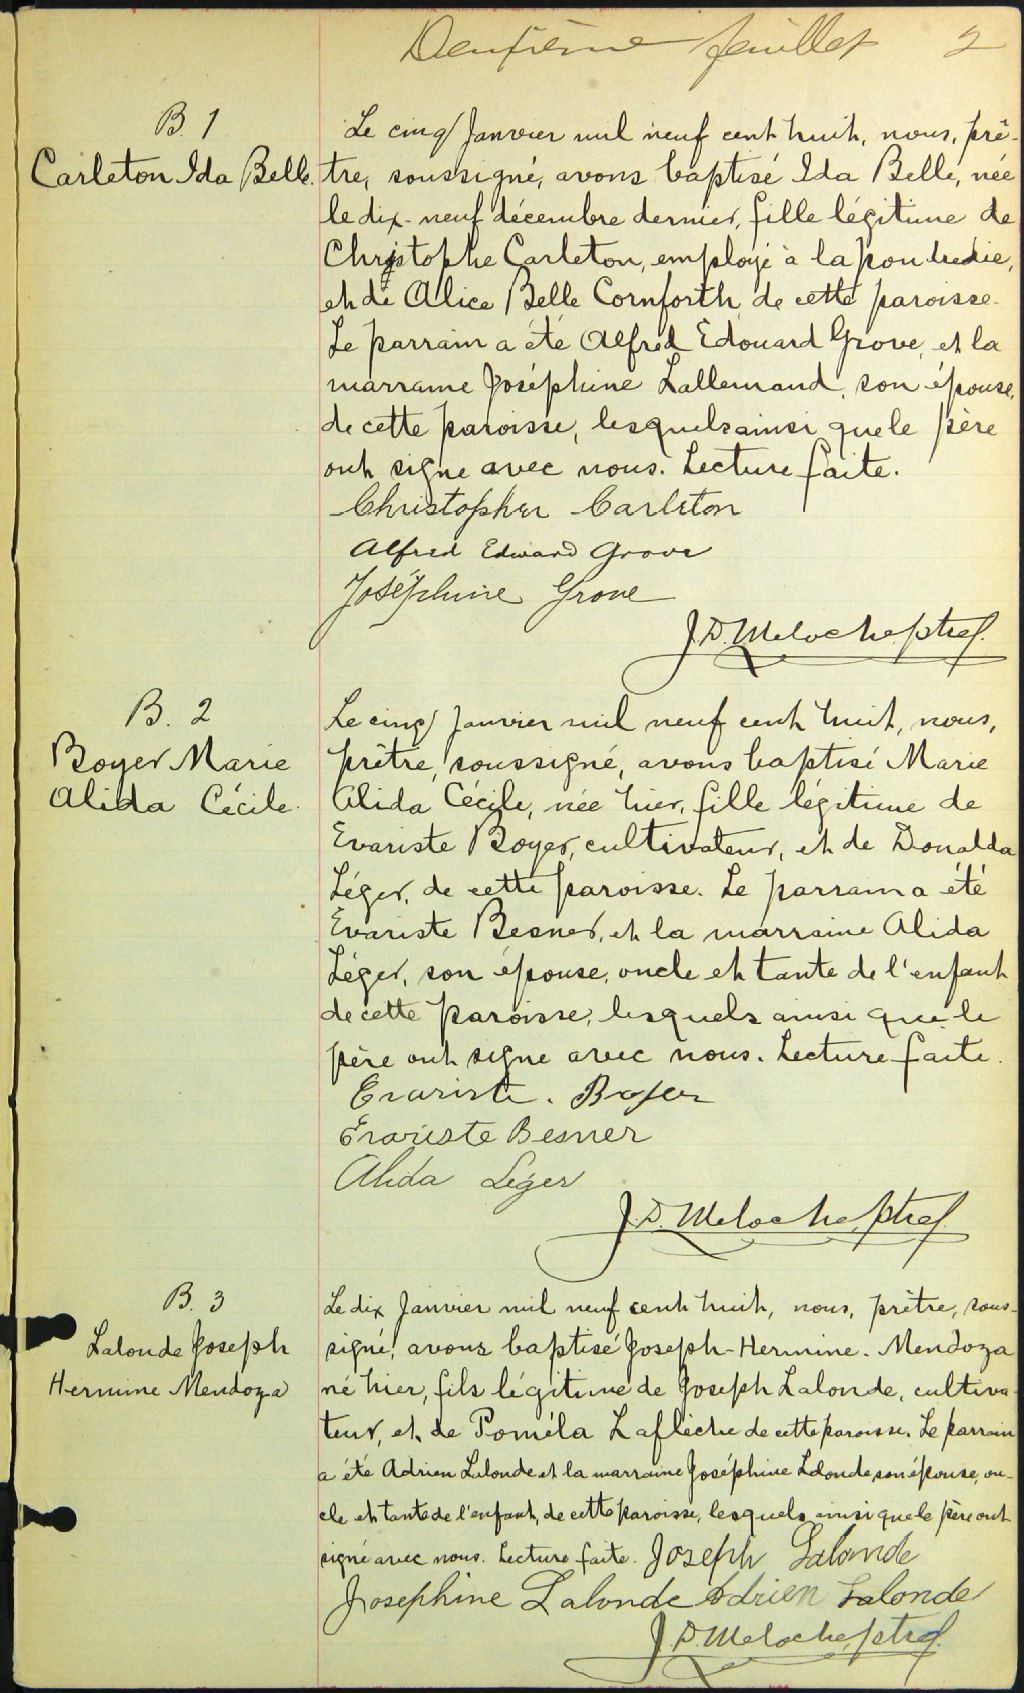 Deuxième feuillet 2
B. 1
Carleton Ida Belle.
Le cinq Janvier mil neuf cent huit, nous, prê-
tre, soussigné, avons baptisé Ida Belle, née
le dix-neuf décembre dernier, fille légitime de
Christophe Carleton, employé à la poudrerie,
et de Alice Belle Cornforth, de cette paroisse.
Le parrain a été Alfred Edouard Grove, et la
marraine Joséphine Lallemand, son épouse,
de cette paroisse, lesquels ainsi que le père
ont signe avec nous. Lecture faite.
Christopher Carleton
Alfred Edward Grove
Joséphine Grove
J. D. Meloche, ptre.
B. 2
Boyer Marie
Alida Cécile.
Le cinq Janvier mil neuf cent huit, nous,
prêtre, soussigné, avons baptisé Marie
Alida Cécile, née hier, fille légitime de
Evariste Boyer, cultivateur, et de Donalda
Léger, de cette paroisse. Le parrain a été
Evariste Besner, et la marraine Alida
Léger, son épouse, oncle et tante de l'enfant
de cette paroisse, lesquels ainsi que le
père ont signe avec nous. Lecture faite.
Evariste. Boyer
Evariste Besner
Alida Léger
J. D. Meloche, ptre.
B. 3
Lalonde Joseph
Hermine Mendoza
Le dix Janvier mil neuf cent huit, nous, prêtre, sous-
signé, avons baptisé Joseph-Hermine-Mendoza
né hier, fils légitime de Joseph Lalonde, cultiva-
teur, et de Poméla Laflèche de cette paroisse. Le parrain
a été Adrien Lalonde et la marraine Joséphine Lalonde son épouse, on-
cle et tante de l'enfant, de cette paroisse, lesquels ainsi que le père ont
signé avec nous. Lecture faite. Joseph Lalonde
Josephine Lalonde Adrien Lalonde
J. D. Meloche, ptre.